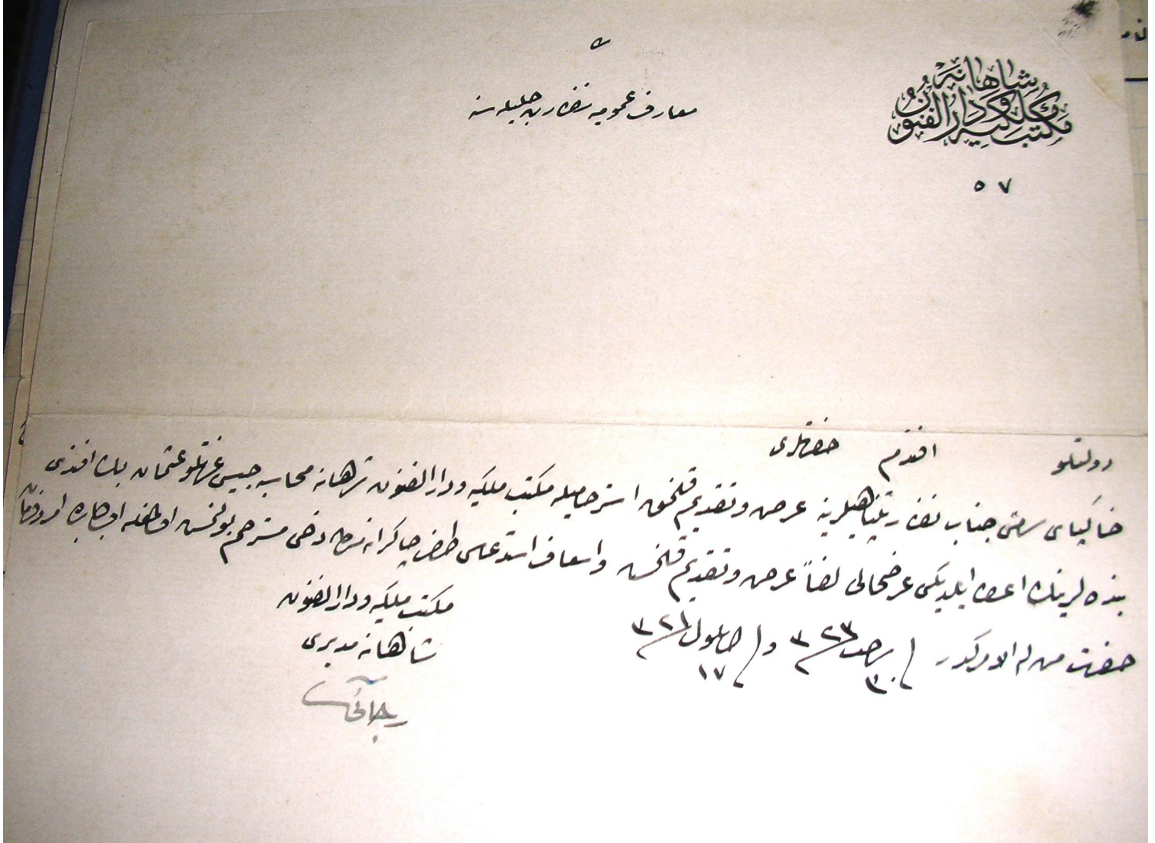 مكتب ملكيه و دار الفنون شاهانه
٥٧
معارف عموميه نظارت جليله سنه
دولتلو افندم حضرتلرى
خاكپاى سامئ جناب نظارتپناهيلرينه عرض و تقديم قلنمق استرحاميله مكتب ملكيه و دار الفنون شاهانه محاسبه جيسى عزتلو عثمان بك افندى
بنده لرينك اعطا ايلديكى عرضحالى لفاً عرض و تقديم قلنمش و اسعاف استدعاسى طرف چاكرانه مدن دخى مسترحم بولنمش اولمغله اولبابده امر و فرمان
حضرت من له الامركدر فى ٣٠ رجب ٣٢٣ و فى ١٧ ايلول ٣٢١
مكتب ملكيه و دار الفنون
شاهانه مديرى
رجائى